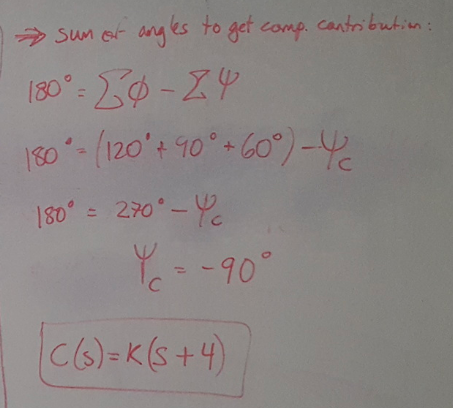 ⇒ sum of angles to get comp. contribution:
180° = Σφ - ΣΨ
180° = (120° + 90° + 60°) - Ψc
180° = 270° - Ψc
Ψc = -90°
C(s) = K(s + 4)